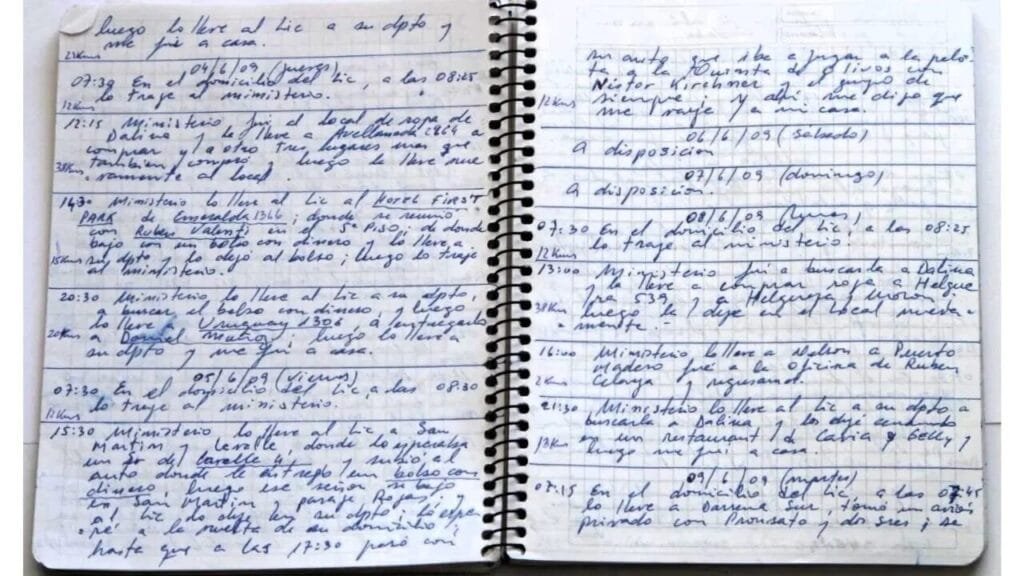 luego lo lleve al Lic a su dpto y
me fui a casa.
23Kms
04/6/09 (jueves)
07:30 En el domicilio del Lic, a las 08:25
lo traje al ministerio.
12Kms
12:15 Ministerio fui al local de ropa de
Dalina y la lleve a Avellaneda 2964 a
comprar y a otro tres lugares mas que
tambien compró y luego la lleve nue
38Kms
-vamente al local.
14:30 Ministerio lo lleve al Lic al HOTEL FIRST
PARK de Esmeralda 1366; donde se reunió
con Ruben Valenti en el 5º PISO; de donde
bajo con un bolso con dinero y lo lleve a
15Kms su dpto y lo dejó al bolso; luego lo traje
al ministerio.
20:30 Ministerio lo lleve al Lic a su dpto,
a buscar el bolso con dinero, y luego
lo lleve a Uruguay 1306, a entregarlo
20Kms a Daniel Muñoz, luego lo lleve a
su dpto y me fui a casa.
05/6/09 (viernes)
07:30 En el domicilio del Lic, a las 08:30
lo traje al ministerio.
12Kms
15:30 Ministerio lo lleve al Lic a San
Martin y Lavalle, donde lo esperaba
un Sr de Lavalle y subió al
auto donde le entregó un bolso con
dinero, luego ese señor se bajo
en San Martin y pasaje Rojas; y
al Lic lo deje en su dpto; lo espe
ré a la vuelta de su domicilio;
hasta que a las 17:30 paró con
su auto que iba a jugar a la pelo
ta a la Quinta de Olivos con
Néstor Kirchner y el grupo de
12Kms siempre, y ahi me dijo que
me vaya a mi casa.
06/6/09 (sabado)
A disposicion
07/6/09 (domingo)
A disposicion.
08/6/09 (lunes)
07:30 En el domicilio del Lic, a las 08:25
lo traje al ministerio.
12Kms
13:00 Ministerio fui a buscarla a Dalina
y la lleve a comprar ropa a Helgue
ra 539, y a Helguera y Moron;
38Kms luego la deje en el local nueva
-mente.
16:00 Ministerio lo lleve a Nelson a Puerto
Madero fué a la oficina de Ruben
2Kms y regresamos.
21:30 Ministerio lo lleve al Lic a su dpto a
buscarla a Dalina y los deje cenando
13Kms en un restaurant de Cavia y Gelly y
luego me fui a casa.
09/6/09 (martes)
07:15 En el domicilio del Lic, a las 07:45
lo lleve a Darsena Sur, tomó un avión
privado con y dos sres; se